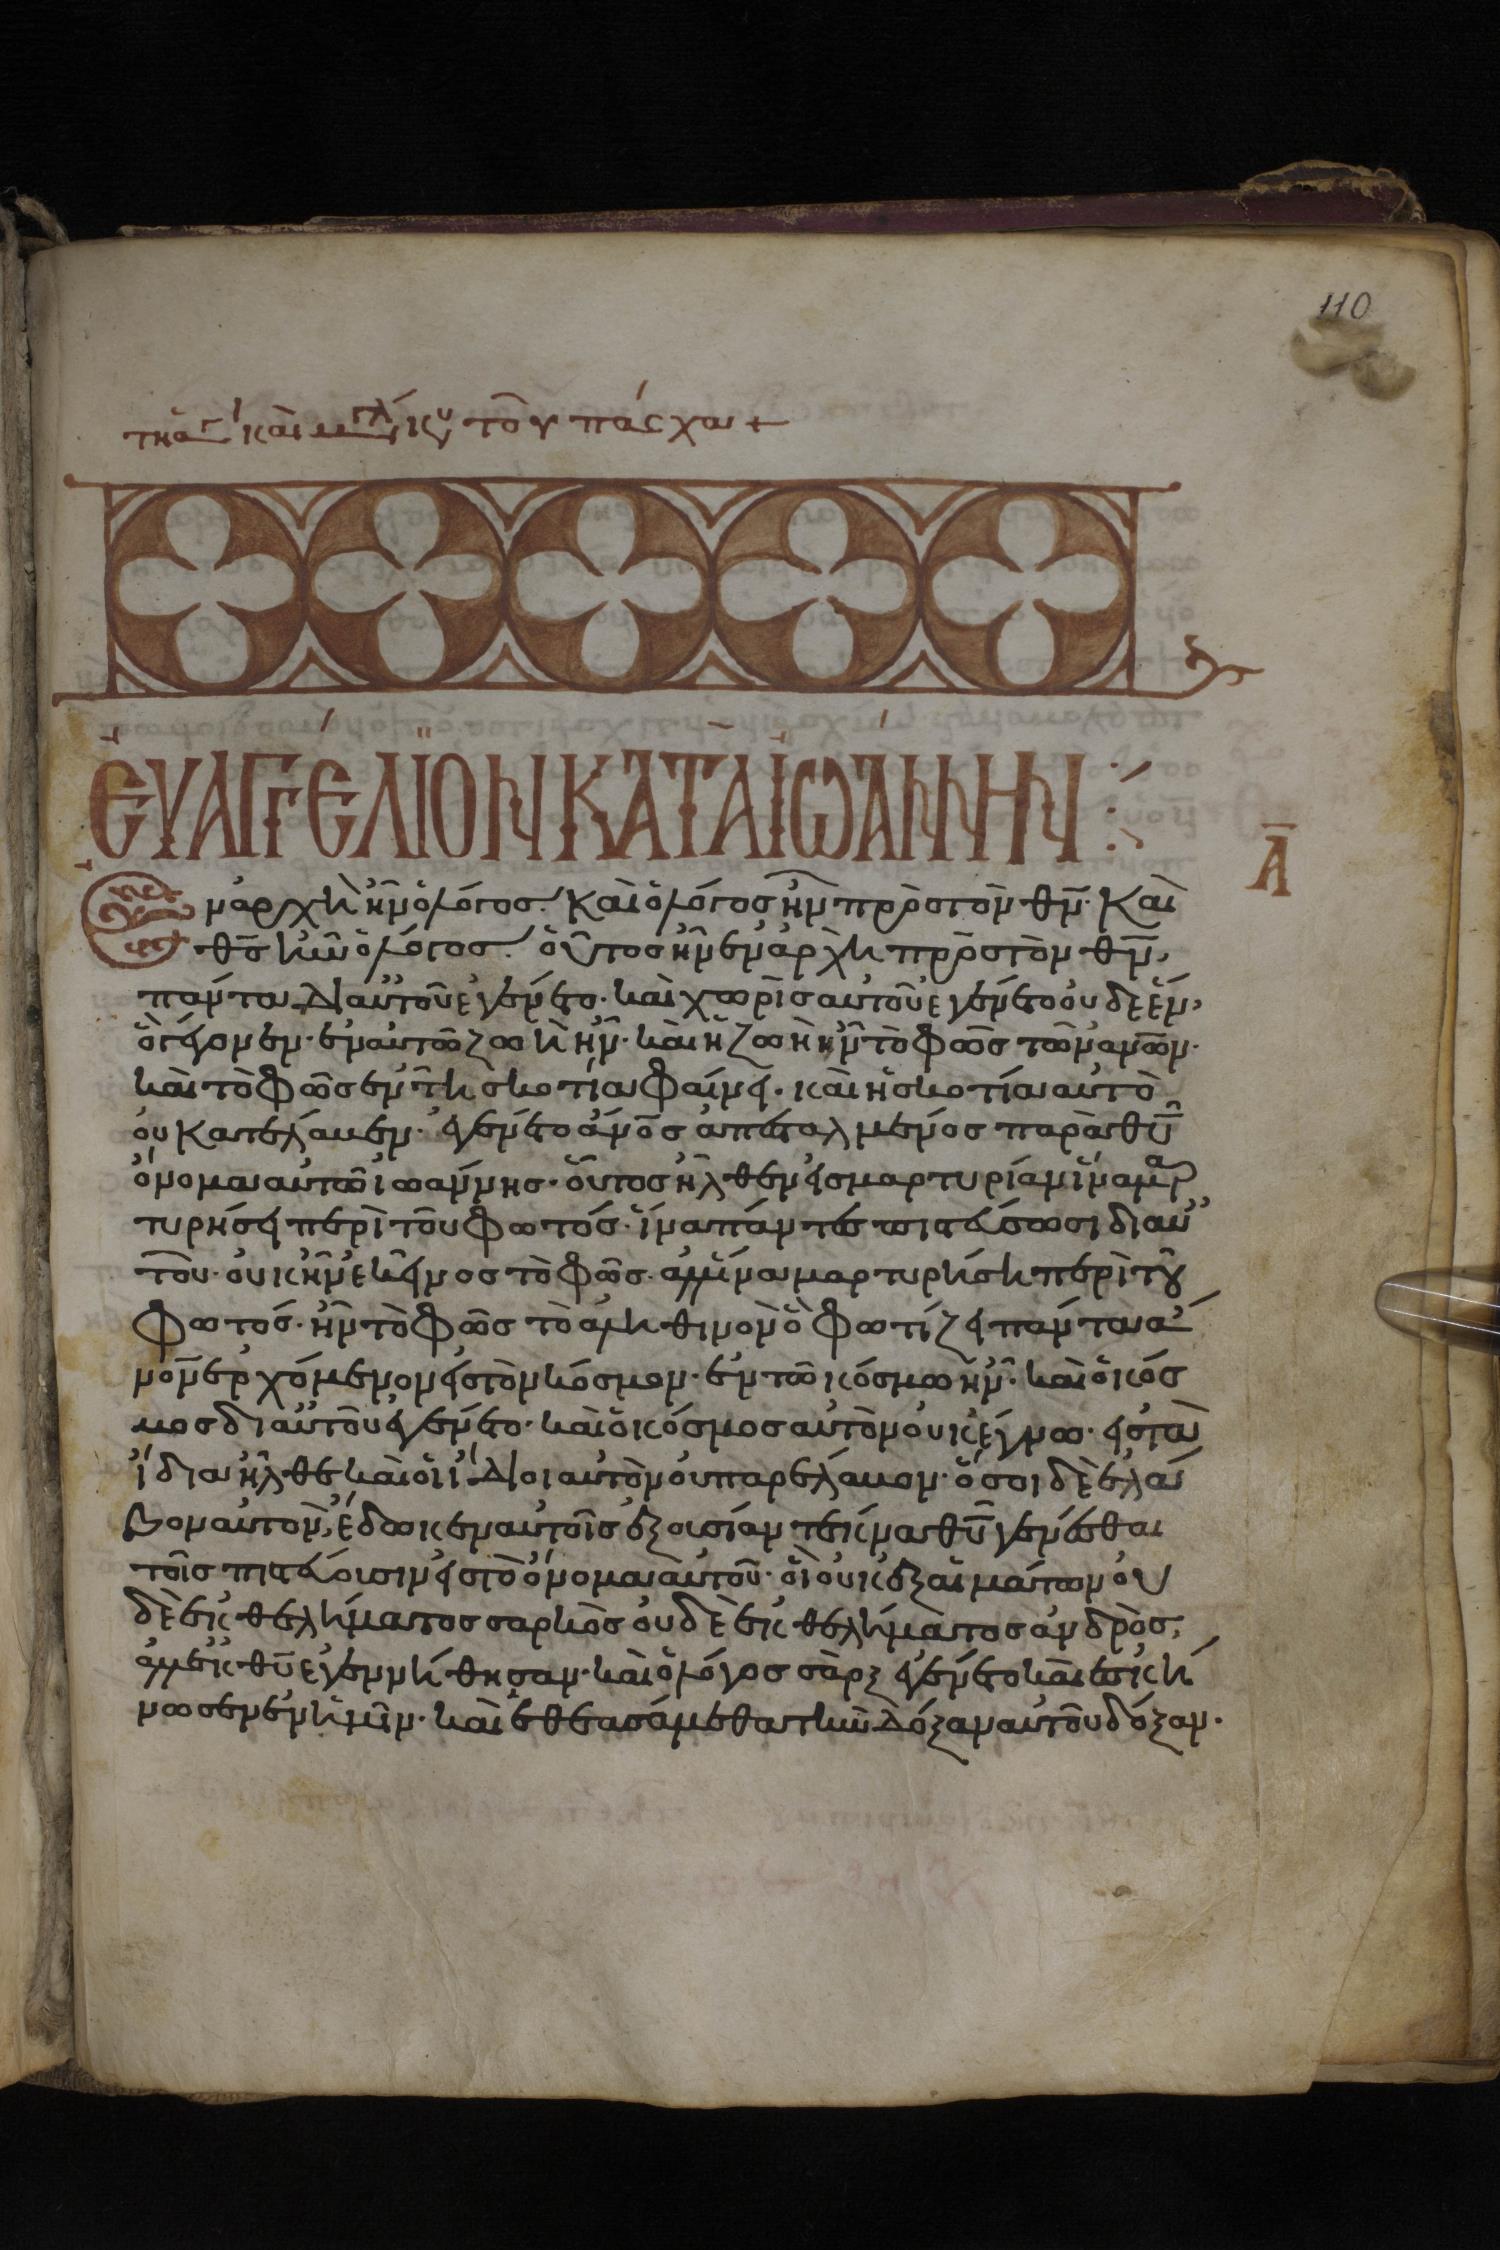 110
τῆ ἁγί καὶ μγλ κυ τοῦ πάσχα +
ἘΥΑΓΓΈΛΙΟΝ ΚΑΤᾺ ἸΩΆΝΝΗΝ
Ᾱ
Ἐν ἀρχῆ ἦν ὁ λόγος· καὶ ὁ λόγος ἦν πρὸς τὸν θν̄· καὶ
θς̄ ἦν ὁ λόγος· οὗτος ἦν ἐν ἀρχῆ πρὸς τὸν θν̄,
πάντα δι αὐτοῦ ἐγένετο· καὶ χωρὶς αὐτοῦ ἐγένετο οὐδὲ ἕν,
ὃ γέγονεν· ἐν αὐτῶ ζωὴ ἦν· καὶ ἡ ζωὴ ἦν τὸ φῶς τῶν ἀνω̄ν·
καὶ τὸ φῶς ἐν τῆ σκοτία φαίνει· καὶ ἡ σκοτία αὐτὸ
οὐ κατέλαβεν· ἐγένετο ἄνο̄ς ἀπεσταλμένος παρὰ θῡ
ὄνομα αὐτῶ ἰωάννης· οὗτος ἦλθεν εἰς μαρτυρίαν ἵνα μαρ
τυρήσει περὶ τοῦ φωτός· ἵνα πάντες πιστεύσωσι δι αὐ
τοῦ· οὐκ ἦν ἐκεῖνος τὸ φῶς· ἀλλ ἵνα μαρτυρήση περὶ τοῦ
φωτός· ἦν τὸ φῶς τὸ ἀληθινὸν ὃ φωτίζει πάντα ἄ
νον̄ ἐρχόμενον εἰς τὸν κόσμον· ἐν τῶ κόσμω ἦν· καὶ ὁ κόσ
μος δι αὐτοῦ ἐγένετο· καὶ ὁ κόσμος αὐτὸν οὐκ ἔγνω· εἰς τὰ
ἴδια ἦλθε καὶ οἱ ἴδιοι αὐτὸν οὐ παρέλαβον· ὅσοι δὲ ἔλα
βον αὐτὸν, ἔδωκεν αὐτοῖς ἐξουσίαν τέκνα θῡ γενέσθαι
τοῖς πιστεύουσιν εἰς τὸ ὄνομα αὐτοῦ· οἳ οὐκ ἐξ αἱμάτων οὐ
δὲ ἐκ θελήματος σαρκὸς οὐδὲ ἐκ θελήματος ἀνδρὸς,
ἀλλ ἐκ θῡ ἐγεννήθησαν· καὶ ὁ λόγος σὰρξ ἐγένετο καὶ ἐσκή
νωσεν ἐν ἡμῖν· καὶ ἐθεασάμεθα τὴν δόξαν αὐτοῦ δόξαν·